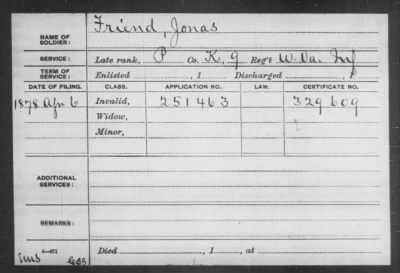 NAME OF SOLDIER: Friend, Jonas
SERVICE: Late rank, P Co. K, 9 Reg't W. Va. Inf
TERM OF SERVICE: Enlisted , 1 Discharged , 1
DATE OF FILING. CLASS. APPLICATION NO. LAW. CERTIFICATE NO.
1878 Apr 6 Invalid, 251463 329609
Widow,
Minor,
ADDITIONAL SERVICES:
REMARKS:
Died , 1 , at